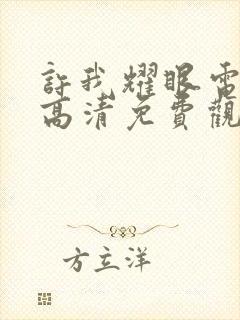 許我耀眼電
高清免費觀
方立洋